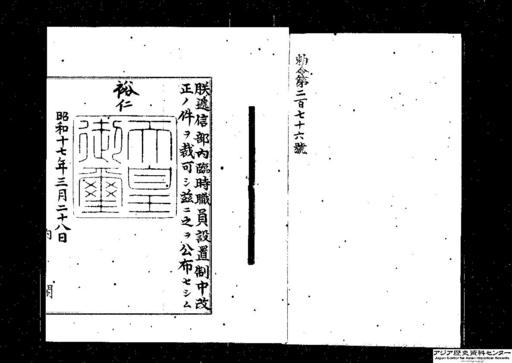 勅令第二百七十六號
朕遞信部內臨時職員設置制中改
正ノ件ヲ裁可シ茲ニ之ヲ公布セシム
裕仁
天皇
御璽
昭和十七年三月二十八日
内閣
アジア歴史資料センター
Japan Center for Asian Historical Records